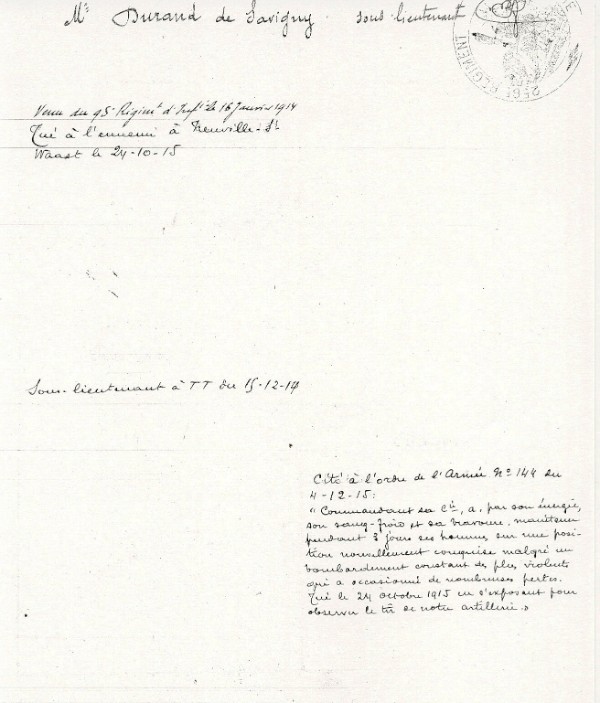 Mr Durand de Savigny sous-lieutenant
REGIMENT
Venu du 95e Régimt d'Infie le 16 Janvier 1914
Tué à l'ennemi à Neuville-St
Waast le 24-10-15
Sous-lieutenant à TT du 15-12-14
Cité à l'ordre de l'Armée No 144 du
4-12-15:
"Commandant sa Cie, a, par son énergie,
son sang-froid et sa bravoure, maintenu
pendant 3 jours ses hommes sur une posi-
tion nouvellement conquise malgré un
bombardement constant des plus violents
qui a occasionné de nombreuses pertes.
Tué le 24 octobre 1915 en s'exposant pour
observer le tir de notre artillerie."